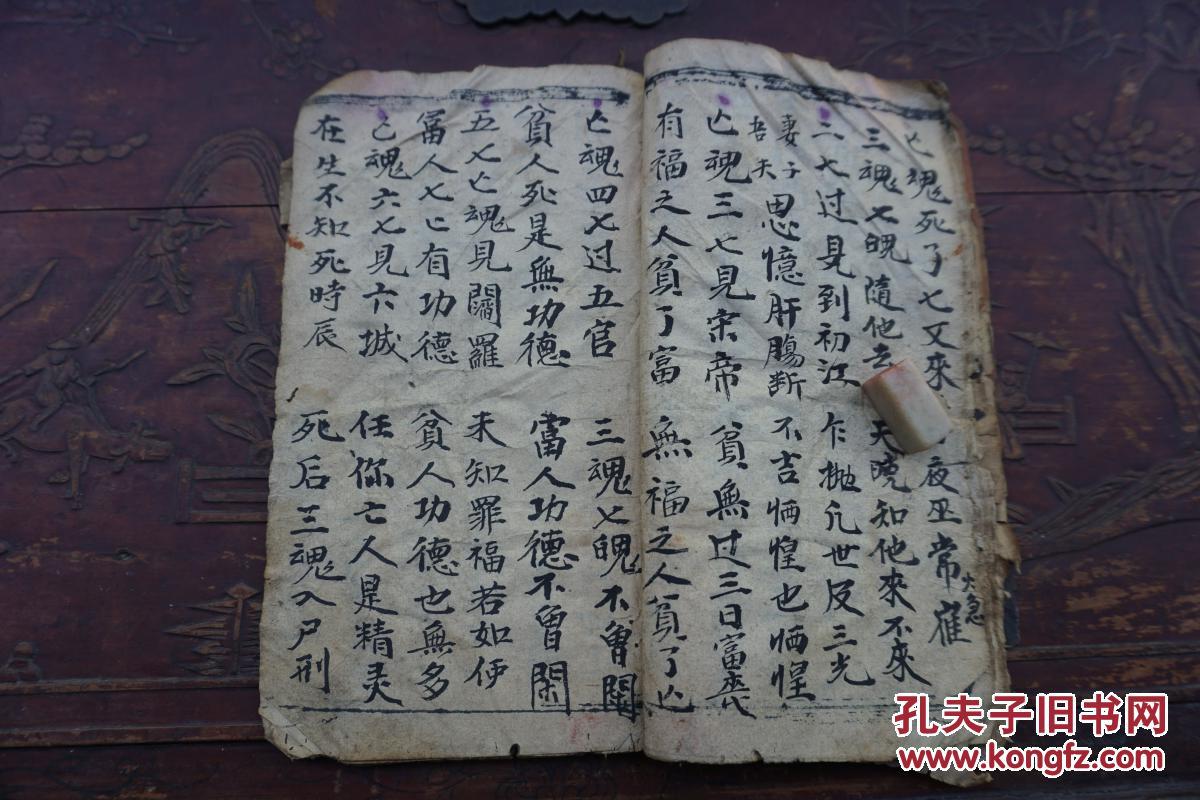 亡魂死了七又來 夜巫常崔火急
三魂七魄隨他去 天曉知他來不來
二七过見到初江 乍拋凡世及三光
妻子吾夫思憶肝腸断 不吉恓惶也恓惶
亡魂三七見宋帝 貧無过三日富
有福之人貧了富 無福之人貧了亡
亡魂四七过五官 三魂七魄不曾閗
貧人死是無功德 富人功德不曾閑
五七亡魂見閻羅 未知罪福若如伊
富人七亡有功德 貧人功德也無多
亡魂六七見六城 任你亡人是精灵
在生不知死時辰 死后三魂入尸刑
孔夫子旧书网
www.kongfz.com